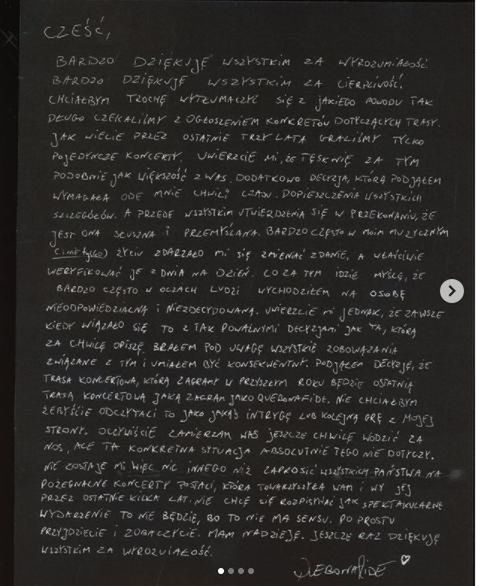 CZEŚĆ,
BARDZO DZIĘKUJĘ WSZYSTKIM ZA WYROZUMIAŁOŚĆ
BARDZO DZIĘKUJĘ WSZYSTKIM ZA CIERPLIWOŚĆ.
CHCIAŁBYM TROCHĘ WYTŁUMACZYĆ SIĘ Z JAKIEGO POWODU TAK
DŁUGO CZEKALIŚMY Z OGŁOSZENIEM KONKRETÓW DOTYCZĄCYCH TRASY.
JAK WIECIE PRZEZ OSTATNIE TRZY LATA GRALIŚMY TYLKO
POJEDYNCZE KONCERTY. UWIERZCIE MI, ŻE TĘSKNIĘ ZA TYM
PODOBNIE JAK WIĘKSZOŚĆ Z WAS. DODATKOWO DECYZJA, KTÓRĄ PODJĄŁEM
WYMAGAŁA ODE MNIE CHWILI CZASU. DOPIESZCZENIA WSZYSTKICH
SZCZEGÓŁÓW. A PRZEDE WSZYSTKIM UTWIERDZENIA SIĘ W PRZEKONANIU, ŻE
JEST ONA SŁUSZNA I PRZEMYŚLANA. BARDZO CZĘSTO W MOIM MUZYCZNYM
(I NIE TYLKO) ŻYCIU ZDARZAŁO MI SIĘ ZMIENIAĆ ZDANIE, A WŁAŚCIWIE
WERYFIKOWAĆ JE Z DNIA NA DZIEŃ. CO ZA TYM IDZIE MYŚLĘ, ŻE
BARDZO CZĘSTO W OCZACH LUDZI WYCHODZIŁEM NA OSOBĘ
NIEODPOWIEDZIALNĄ I NIEZDECYDOWANĄ. UWIERZCIE MI JEDNAK, ŻE ZAWSZE
KIEDY WIĄZAŁO SIĘ TO Z TAK POWAŻNYMI DECYZJAMI JAK TA, KTÓRĄ
ZA CHWILĘ OPISZĘ BRAŁEM POD UWAGĘ WSZYSTKIE ZOBOWIĄZANIA
ZWIĄZANE Z TYM I UMIAŁEM BYĆ KONSEKWENTNY. PODJĄŁEM DECYZJĘ, ŻE
TRASA KONCERTOWA, KTÓRĄ ZAGRAMY W PRZYSZŁYM ROKU BĘDZIE OSTATNIĄ
TRASĄ KONCERTOWĄ JAKĄ ZAGRAM JAKO QUEBONAFIDE. NIE CHCIAŁBYM
ŻEBYŚCIE ODCZYTALI TO JAKO JAKĄŚ INTRYGĘ LUB KOLEJNĄ GRĘ Z MOJEJ
STRONY. OCZYWIŚCIE ZAMIERZAM WAS JESZCZE CHWILĘ WODZIĆ ZA
NOS, ALE TA KONKRETNA SYTUACJA ABSOLUTNIE TEGO NIE DOTYCZY.
NIE ZOSTAJE MI WIĘC NIC INNEGO NIŻ ZAPROSIĆ WSZYSTKICH PAŃSTWA NA
POŻEGNALNE KONCERTY POSTACI, KTÓRA TOWARZYSZYŁA WAM I WY JEJ
PRZEZ OSTATNIE KILKA LAT. NIE CHCĘ SIĘ ROZPISYWAĆ JAK SPEKTAKULARNE
WYDARZENIE TO NIE BĘDZIE, BO TO NIE MA SENSU. PO PROSTU
PRZYJDZIECIE I ZOBACZYCIE. MAM NADZIEJĘ. JESZCZE RAZ DZIĘKUJĘ
WSZYSTKIM ZA WYROZUMIAŁOŚĆ.
QUEBONAFIDE